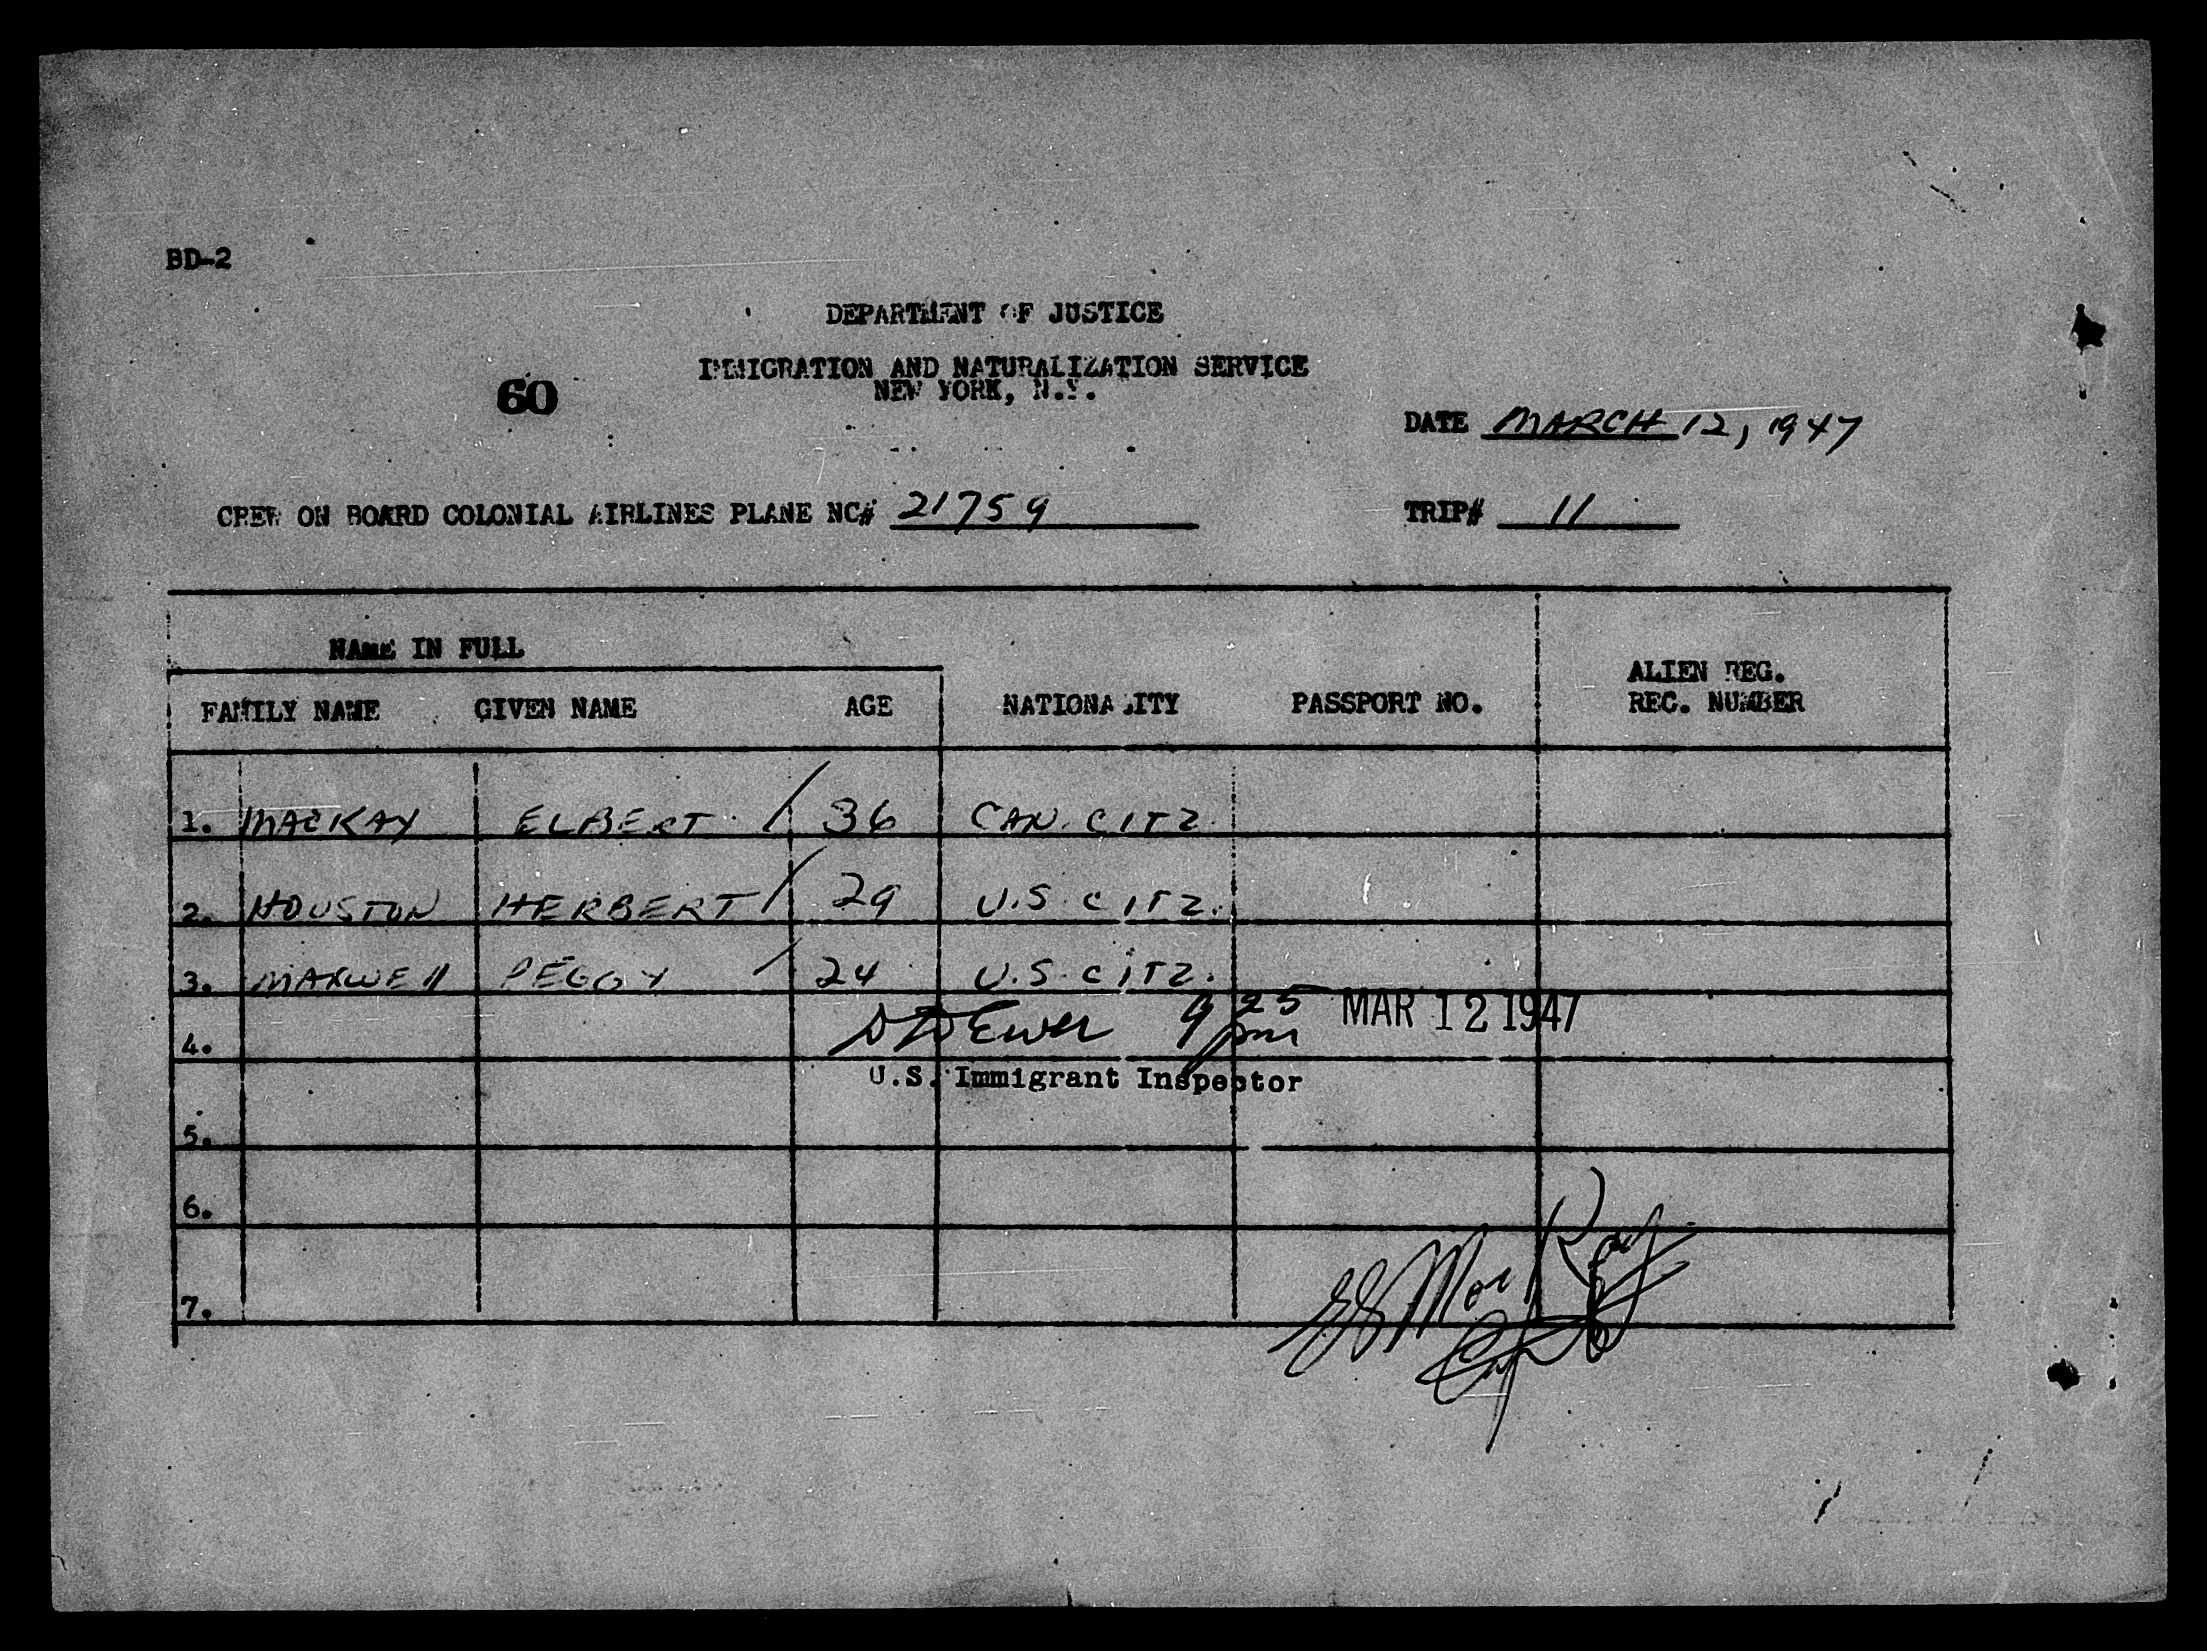 BD-2
DEPARTMENT OF JUSTICE
IMMIGRATION AND NATURALIZATION SERVICE
60
NEW YORK, N.Y.
DATE MARCH 12, 1947
CREW ON BOARD COLONIAL AIRLINES PLANE NC# 21759 TRIP# 11
NAME IN FULL
ALIEN REG.
FAMILY NAME GIVEN NAME AGE NATIONALITY PASSPORT NO. REC. NUMBER
1. MACKAY ELBERT / 36 CAN. CITZ.
2. HOUSTON HERBERT / 29 U.S. CITZ.
3. MAXWELL PEGGY / 24 U.S. CITZ.
4. 9 25 pm MAR 12 1947
U.S. Immigrant Inspector
5.
6.
7.